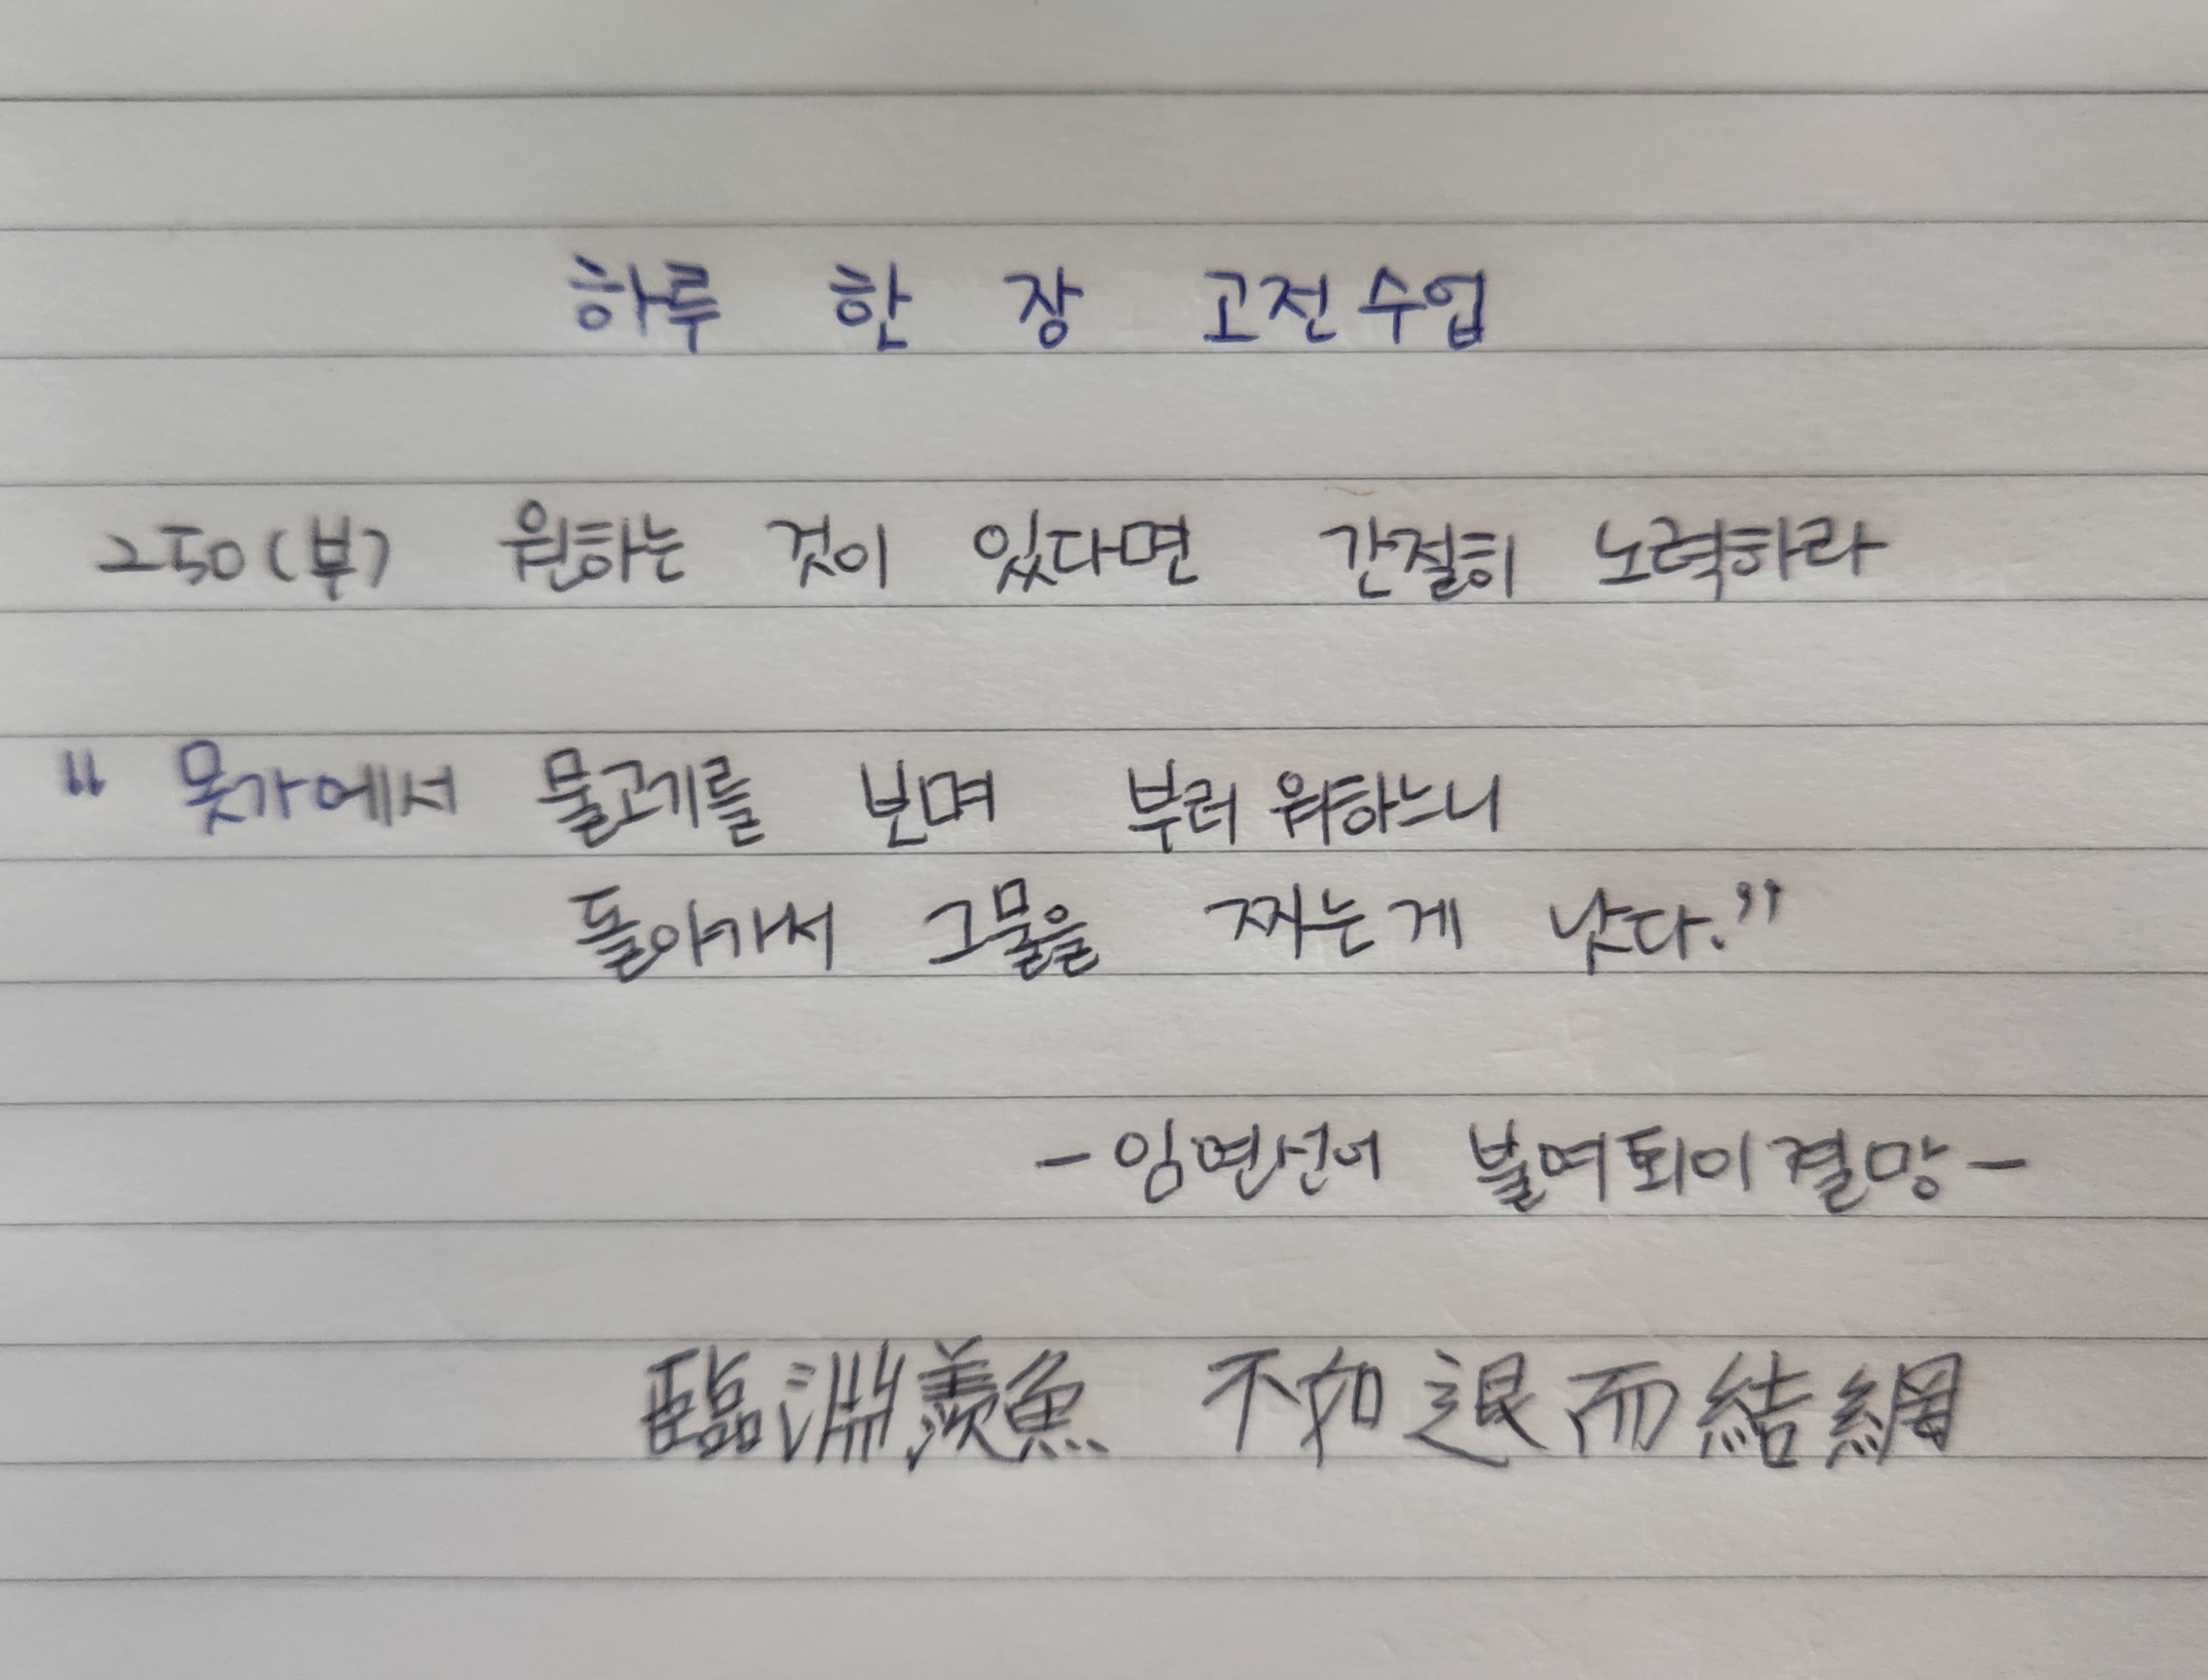 하루 한 장 고전수업
250(부) 원하는 것이 있다면 간절히 노력하라
“ 못가에서 물고기를 보며 부러워하느니
돌아가서 그물을 짜는게 낫다.”
-임연선어 불여퇴이결망-
臨淵羨魚 不如退而結網